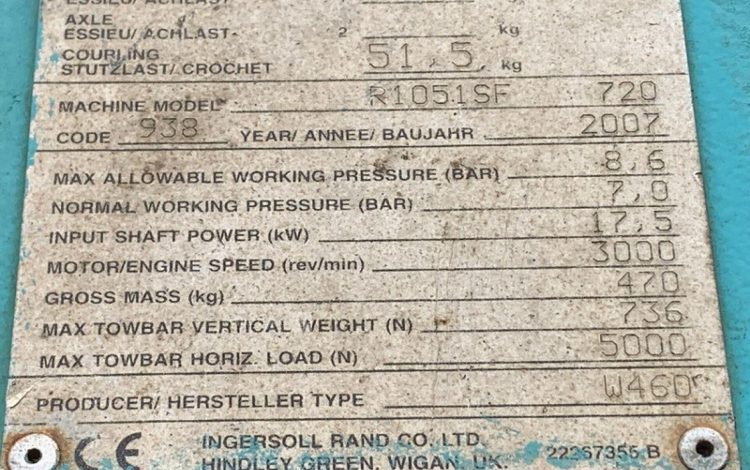 ESSIEU/ ACHLAST kg
AXLE
ESSIEU/ ACHLAST- 2 kg
COUPLING
STUTZLAST/ CROCHET 51,5 kg
MACHINE MODEL R1051SF 720
CODE 938 YEAR/ ANNEE/ BAUJAHR 2007
MAX ALLOWABLE WORKING PRESSURE (BAR) 8,6
NORMAL WORKING PRESSURE (BAR) 7,0
INPUT SHAFT POWER (kW) 17,5
MOTOR/ENGINE SPEED (rev/min) 3000
GROSS MASS (kg) 470
MAX TOWBAR VERTICAL WEIGHT (N) 736
MAX TOWBAR HORIZ. LOAD (N) 5000
PRODUCER/ HERSTELLER TYPE W460
CE INGERSOLL RAND CO. LTD.
HINDLEY GREEN, WIGAN, UK. 22267355 B